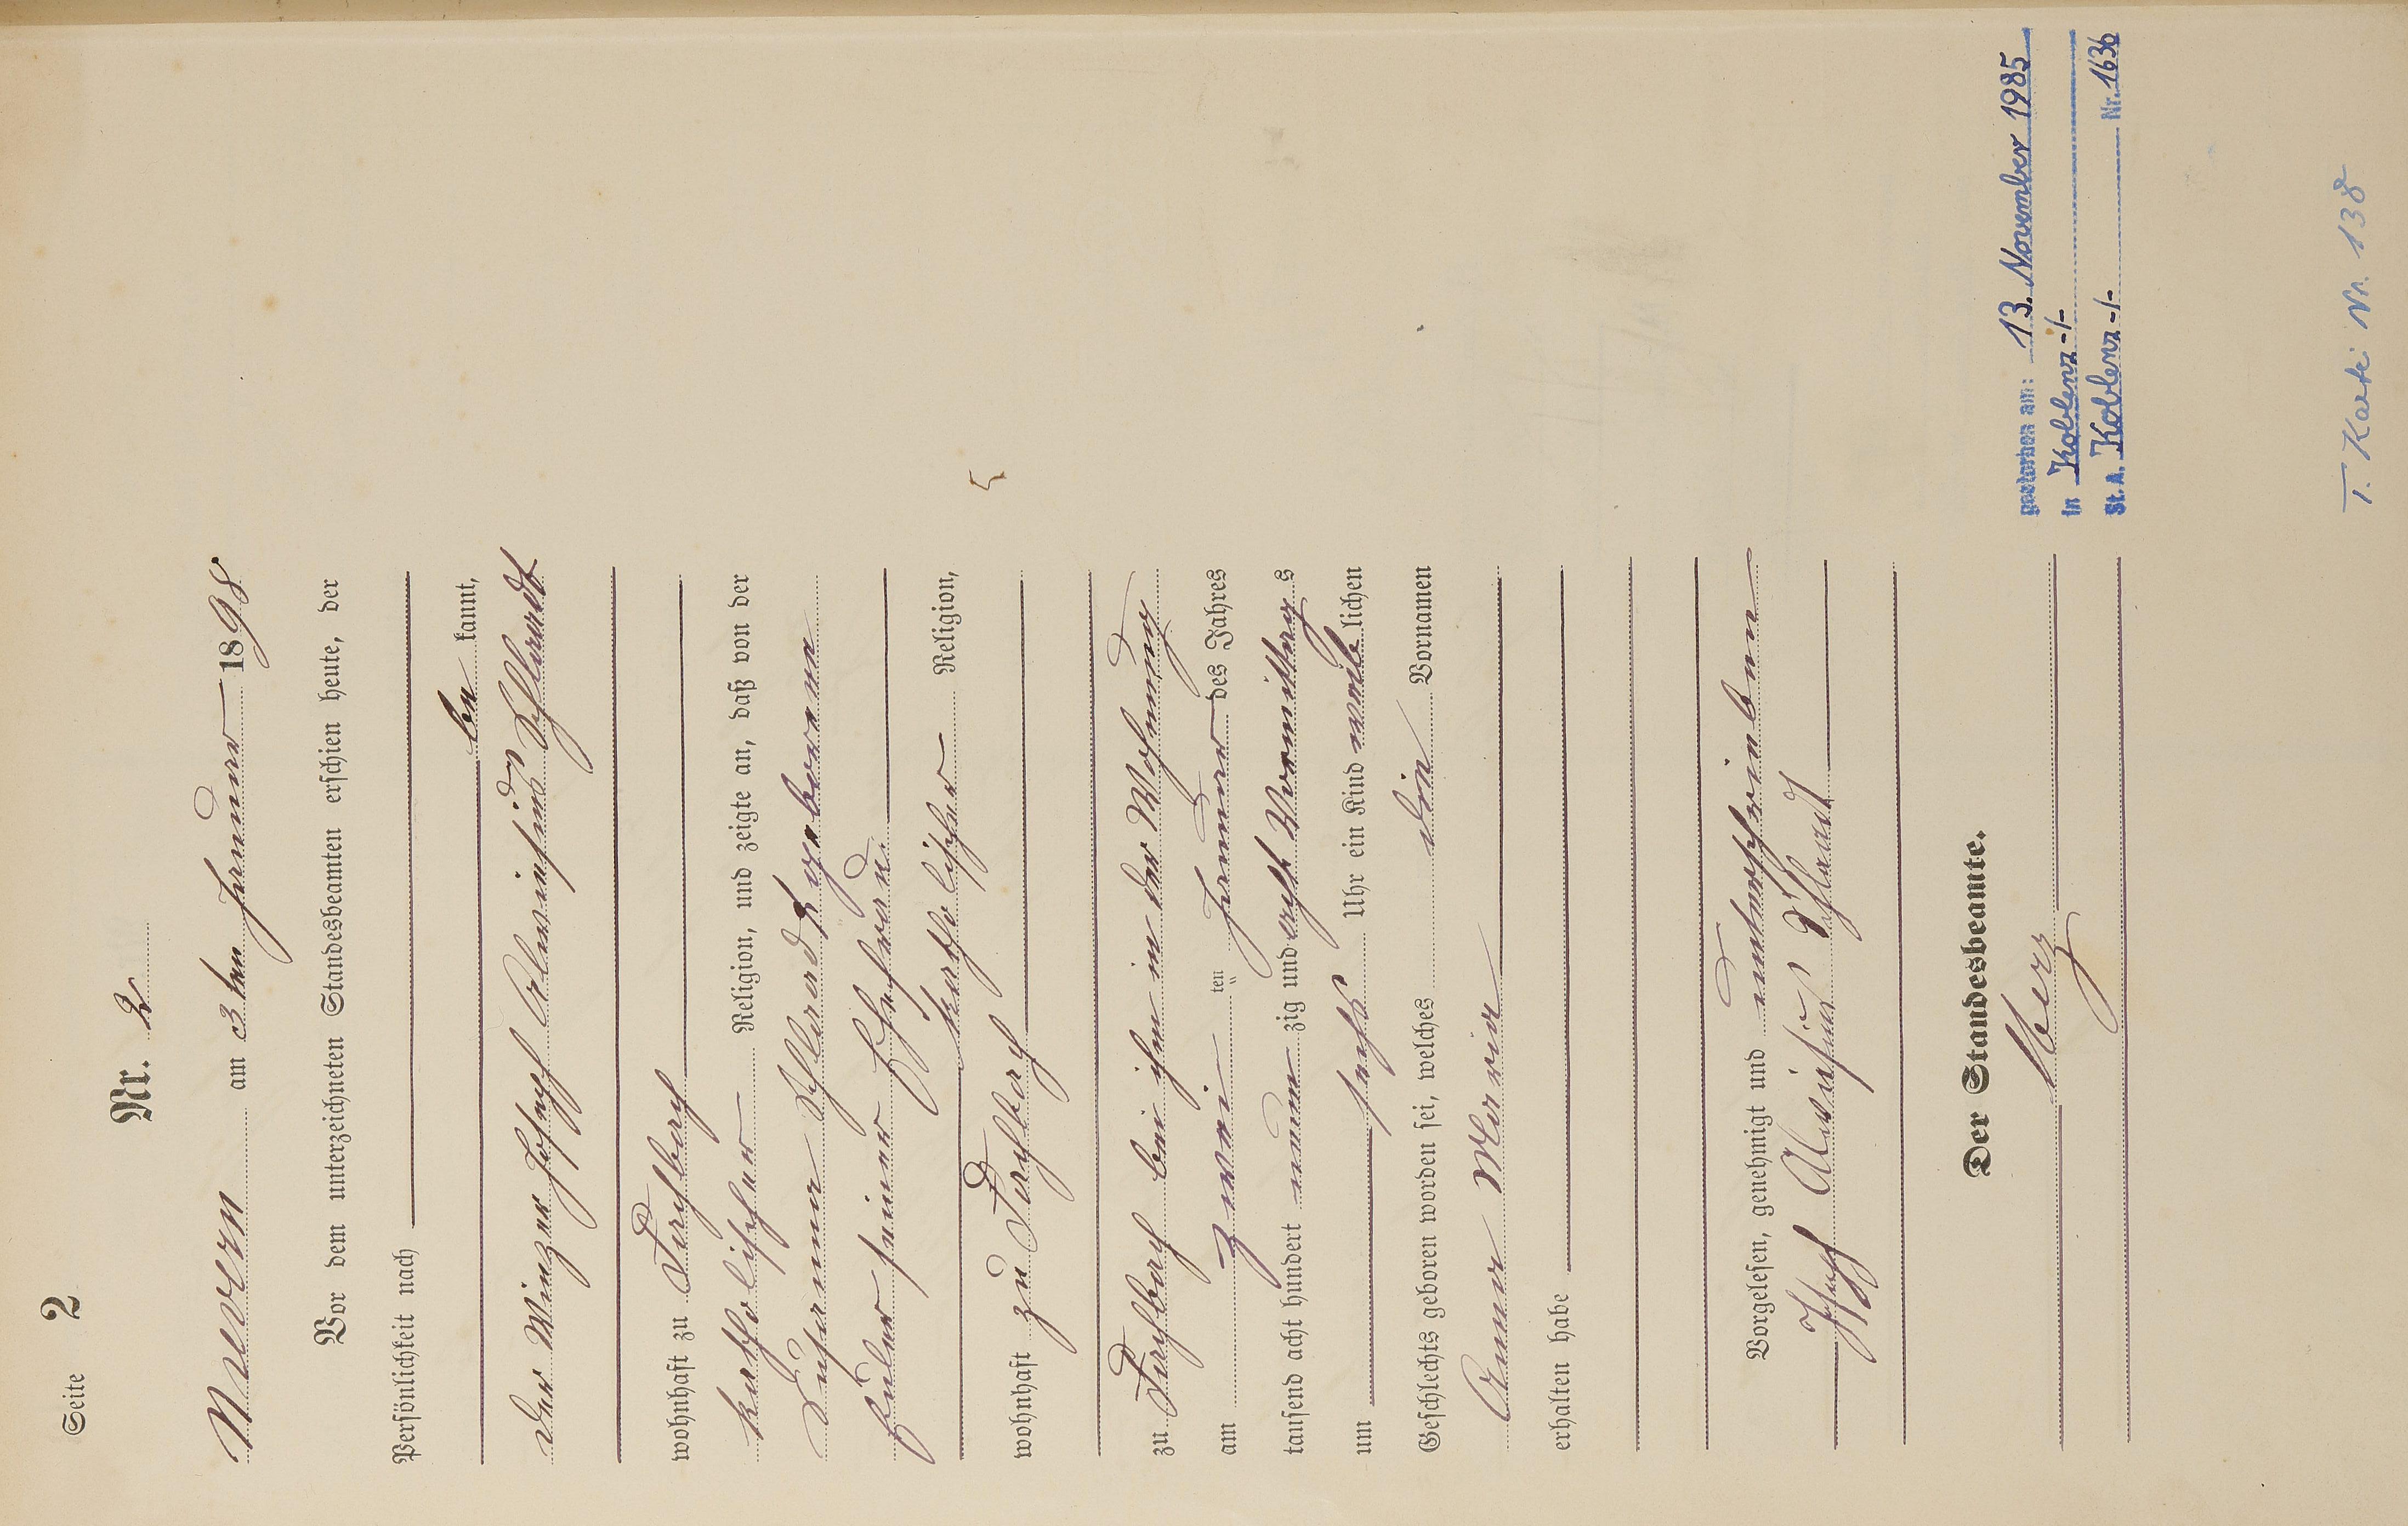 Seite 2
Nr. 2
Mevern am 3 ten Januar 1898
Vor dem unterzeichneten Standesbeamten erschien heute, der
Persönlichkeit nach
be kannt,
der Winzer Joseph Aloisius Schlaadt
wohnhaft zu
katholischer Religion, und zeigte an, daß von der
Susanna Schlaadt geborene
seiner Ehefrau
katholischer Religion,
wohnhaft zu
zu bei ihm in der Wohnung
am zwei ten Januar des Jahres
tausend acht hundert neun zig und acht Vormittags
um sechs Uhr ein Kind weib lichen
Geschlechts geboren worden sei, welches die Vornamen
Anna Maria
erhalten habe
Vorgelesen, genehmigt und unterschrieben
Joseph Aloisius Schlaadt
Der Standesbeamte.
Merz
gestorben am: 13. November 1985
in Koblenz -/-
St. A. Koblenz -/- Nr. 1636
T. Kartei Nr. 138